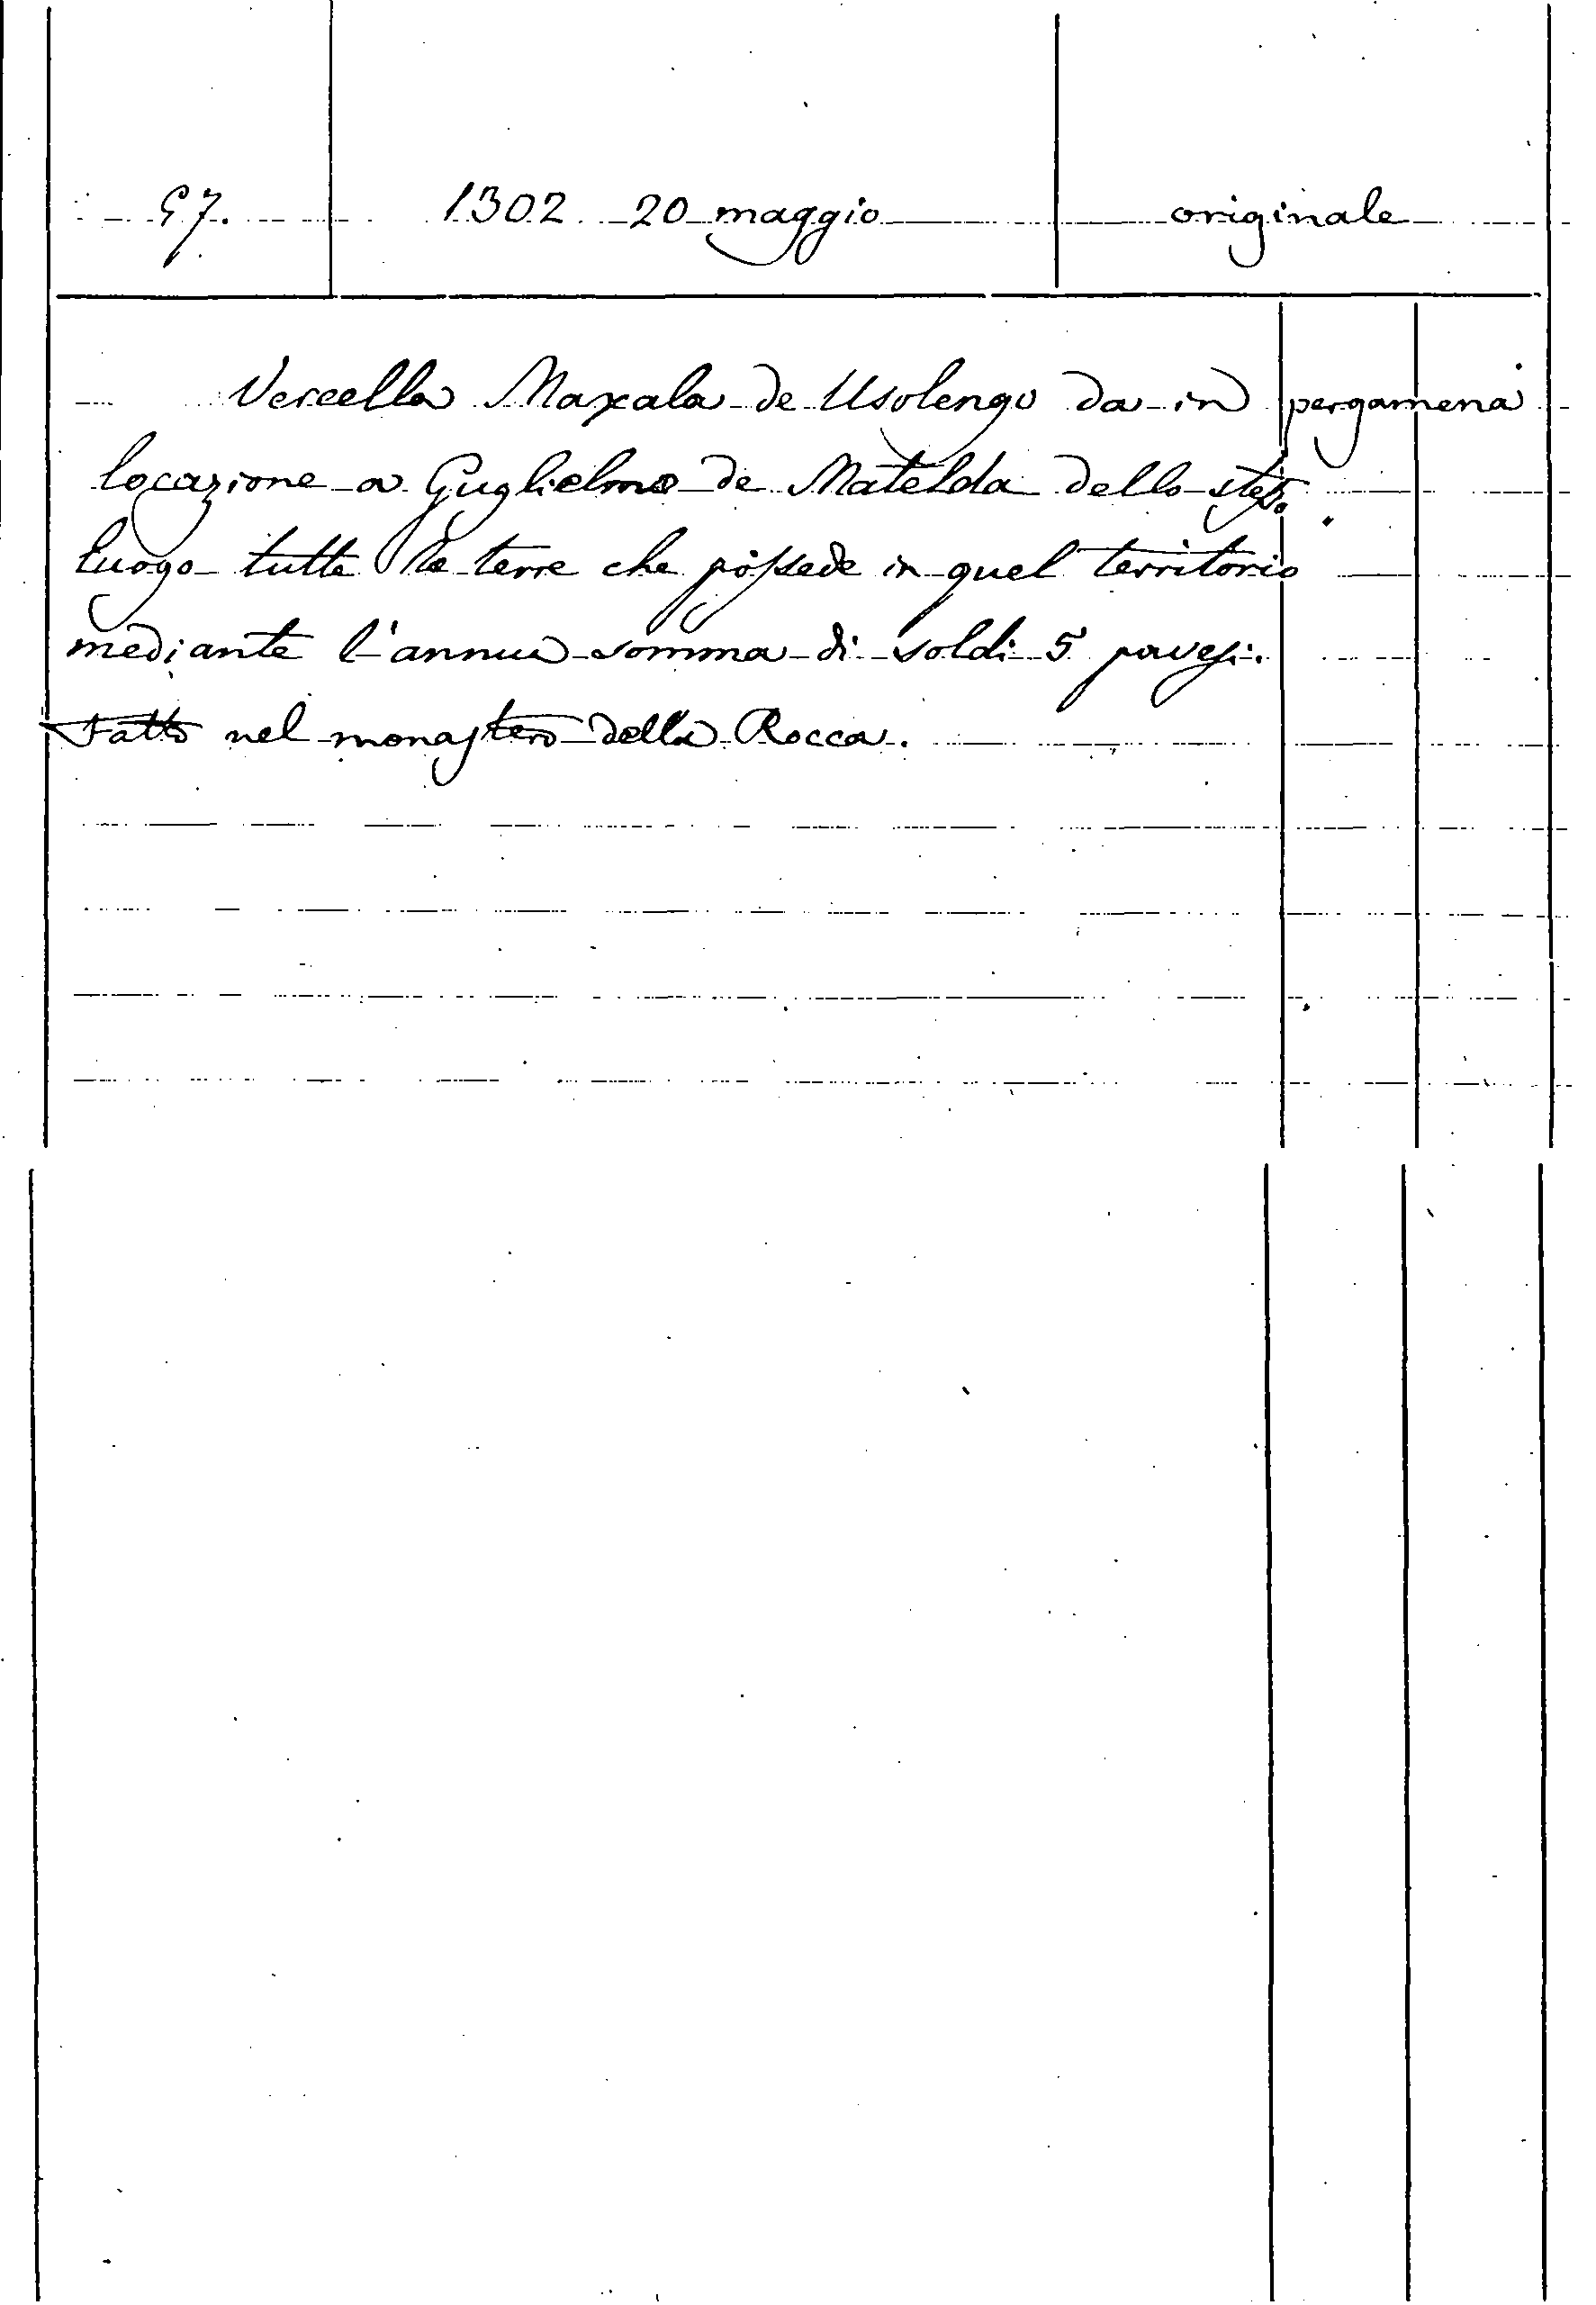 97. 1302 20 maggio originale
Vercella Maxala de Usolengo da in pergamena
locazione a Guglielmo de Matelda dello stesso
luogo tutte le terre che possede in quel territorio
mediante l'annua somma di soldi 5 pavesi.
Fatto nel monastero della Rocca.